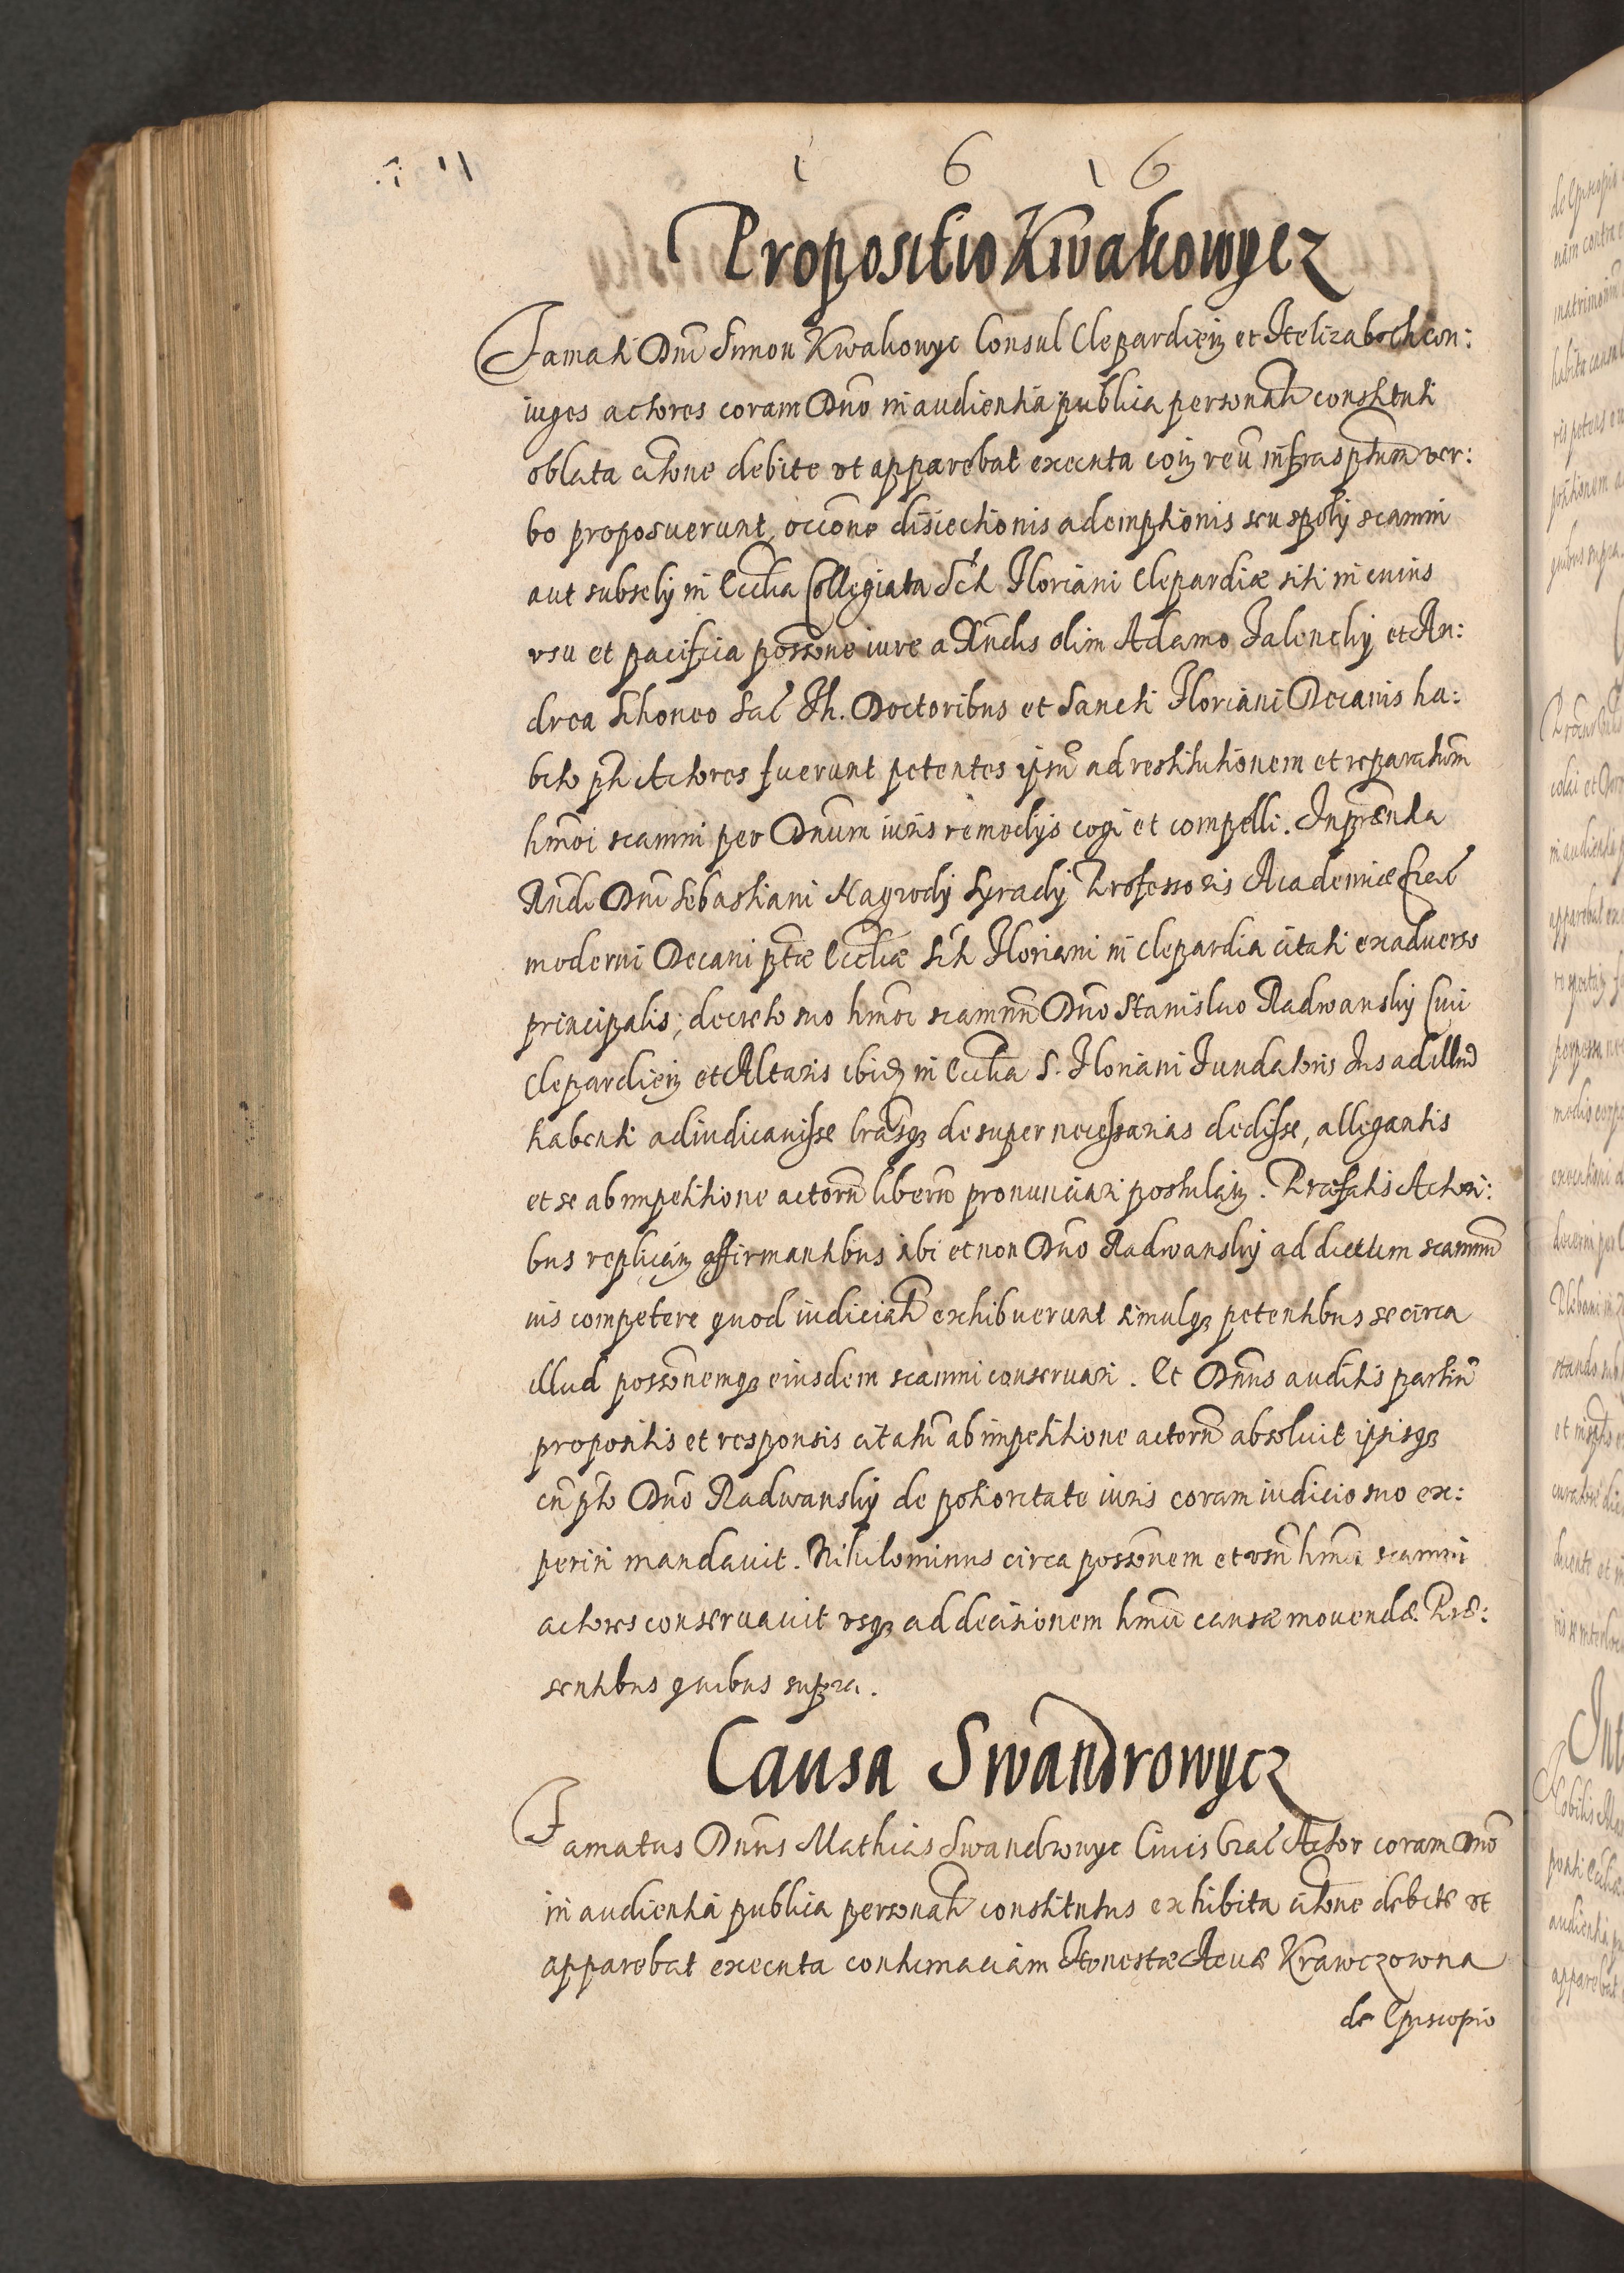 1 6 1 6
Propositio Kwakowycz
Famati Dni Simon Kwakowyc Consul Clepardien et Helizabeth con:
iuges actores coram Dno in audientia publica personalr constituti
oblata citone debite vt apparebat executa coın reū infrasptum ver:
bo proposuerunt, occone disiectionis ademptionis seu spolÿ scamni
aut subselÿ in Ecclia Collegiata Scti Floriani Clepardiæ siti in cuius
vsu et pacifica possone iure a Rndis olim Adamo Falenckÿ et An:
drea Schoneo Sac Th. Doctoribus et Sancti Floriani Decanis ha:
bito pti Actores fuerunt petentes ipsū ad restitutionem et reparatiom
hmoi scamni per Dnum iuris remedÿs cogi et compelli. In prentia
Rndi Dni Sebastiani Nagrodÿ Syradÿ Professoris Academiæ Crac
moderni Decani ptæ Eccliæ Scti Floriani in Clepardia citati ex aduerso
principalis, decreto suo hmoi scamnū Dno Stanislao Radwanskÿ Ciui
Clepardien et Altaris ibid in Ecclia S. Floriani Fundatoris Ius ad illud
habenti adiudicauisse lrasq de super necessarias dedisse, allegantis
et se ab impetitione actorū liberū pronunciari postulan. Præfatis Actori:
bus replican affirmantibus sibi et non Dno Radwanskÿ ad dictum scamnū
ius competere quod iudicialr exhibuerunt simulq petentibus se circa
illud possonemq eiusdem scamni conseruari. Et Dnus auditis partiū
propositis et responsis citatū ab impetitione actorū absoluit ipsisq
cū pto Dno Radwanskÿ de potioritate iuris coram iudicio suo ex:
periri mandauit. Nihilominus circa possonem et vsū hmoi scamni
actores conseruauit vsq ad decisionem hmoi causæ mouendæ. Præ:
sentibus quibus supra.
Causa Swandrowycz
Famatus Dnus Mathias Swandrowyc Ciuis Crac Actor coram Dno
in audientia publica personalr constitutus exhibita citone debite vt
apparebat executa contumaciam Honestæ Aeuæ Krawczowna
de Episcopio